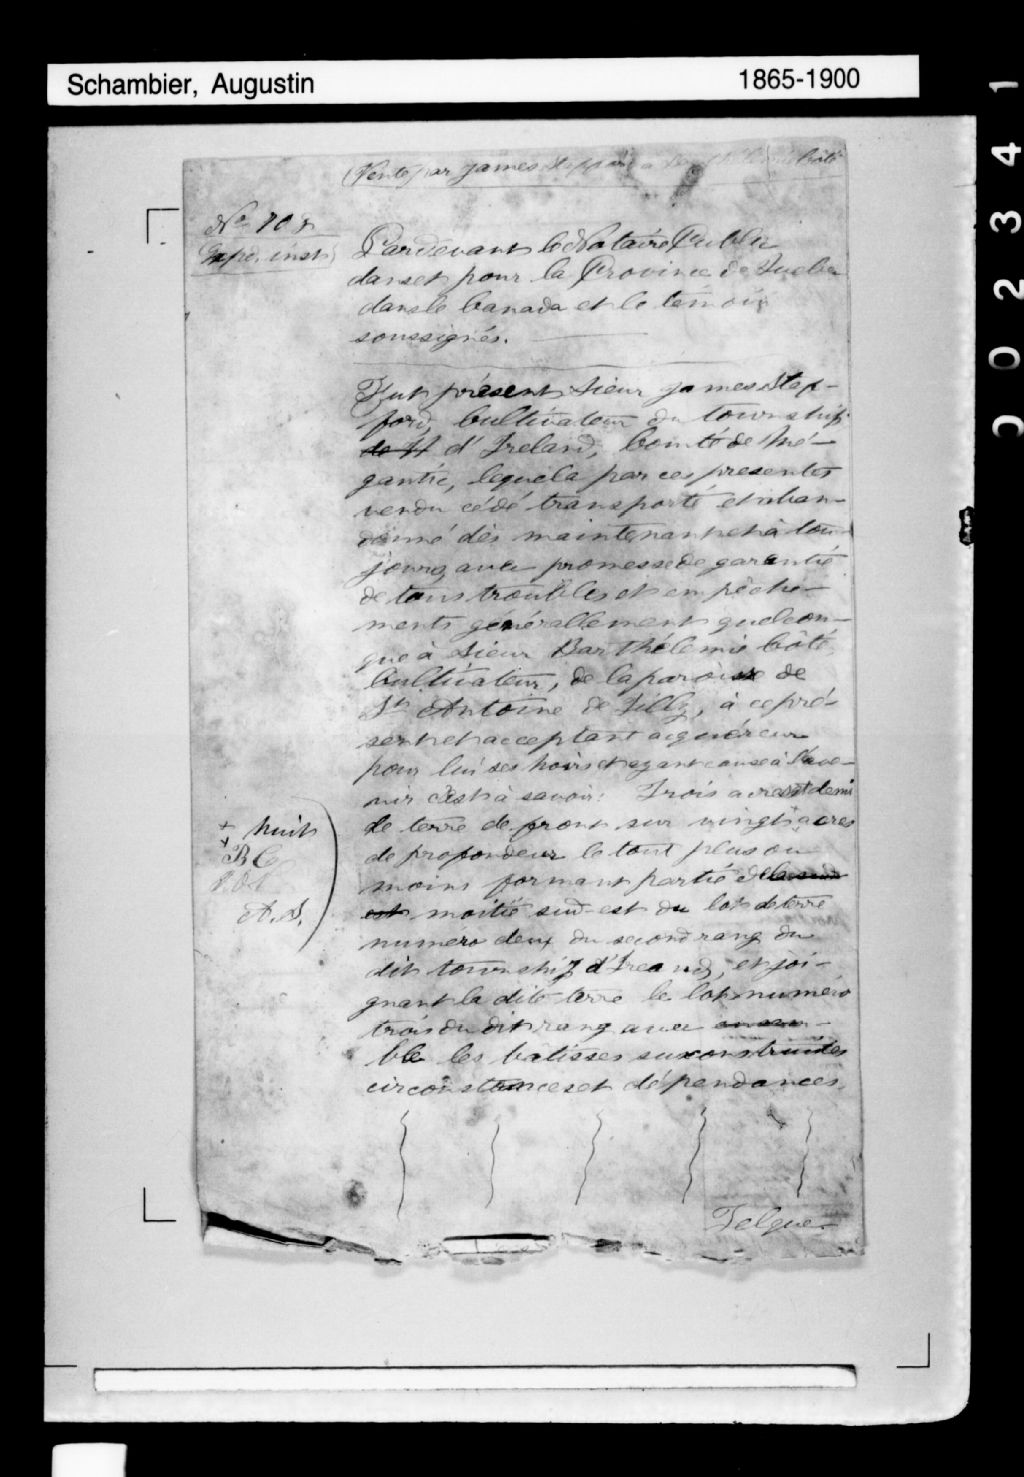 Schambier, Augustin
1865-1900
002341
(Vente par James Stepford à Barthélemie Côté
No. 708
Expd. inst.
Pardevant le Notaire Public
dans et pour la Province de Quebec
dans le Canada et le témoin
soussignés.
Fut présent Sieur James Step-
ford, Cultivateur du township
d'Ireland, Comté de Mé-
gantic, lequel a par ces presentes
vendu cédé transporté et aban-
donné dès maintenant et à tou-
jours avec promesse de garantie
de tous troubles et empêche-
ments généralement quelcon-
que à Sieur Barthélemie Côté,
Cultivateur, de la paroisse de
St Antoine de Tilly, à ce pré-
sent et acceptant acquéreur
pour lui ses hoirs et ayant cause à l'ave-
nir c'est à savoir: Trois acres et demi
de terre de front sur vingt + acres
de profondeur le tout plus ou
moins formant partie de la sud
est moitié sud-est du lot de terre
numero deux du second rang du
dit township d'Ireand, et joi-
gnant la dite terre le lot numéro
trois du dit rang avec ensem-
ble les bâtisses sus construites
circonstances et dépendances.
+ huit
+ B C
A. S.
Telque